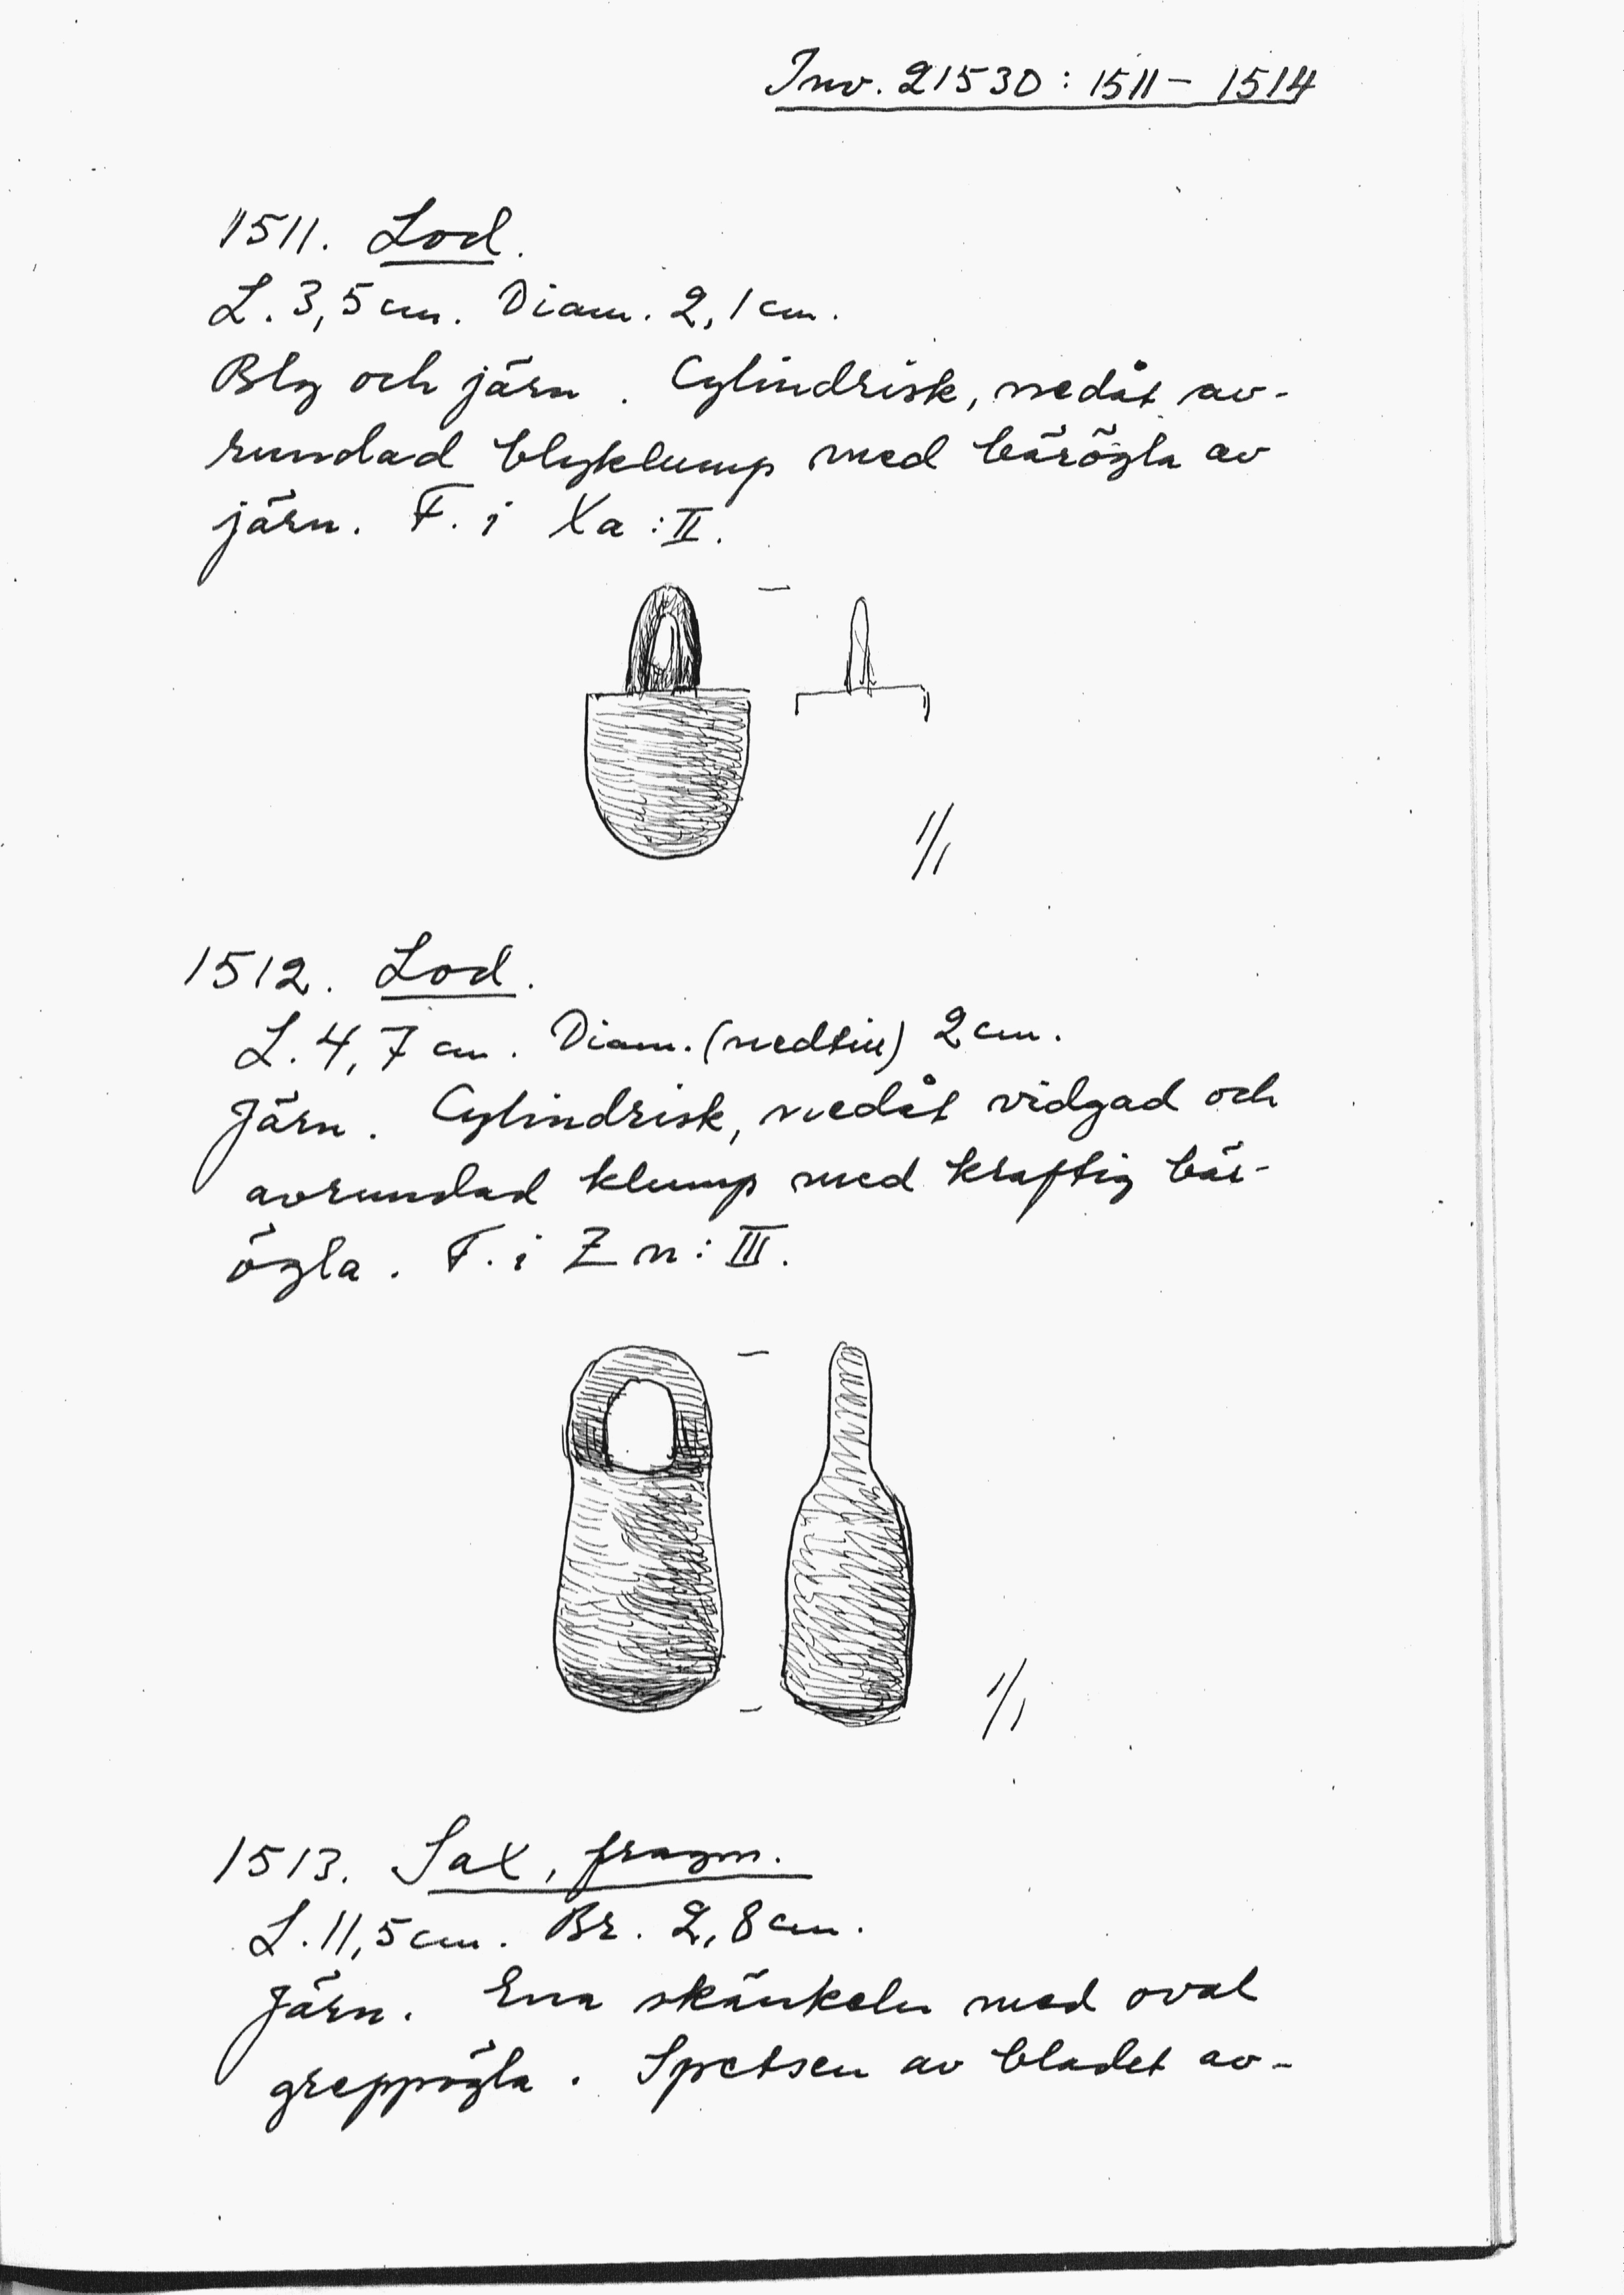 Inv. 21530 : 1511 - 1514
1511. Lod.
L. 3,5 cm. Diam. 2,1 cm.
Bly och järn. Cylindrisk, nedåt av-
rundad blyklump med bärögla av
järn. F. i Xa : II.
1/1
1512. Lod.
L. 4,7 cm. Diam. (nedtill) 2 cm.
Järn. Cylindrisk, nedåt vidgad och
avrundad klump med kraftig bär-
ögla. F. i Zn : III.
1/1
1513. Sax, fragm.
L. 11,5 cm. Br. 2,8 cm.
Järn. Ena skänkeln med oval
greppögla. Spetsen av bladet av-